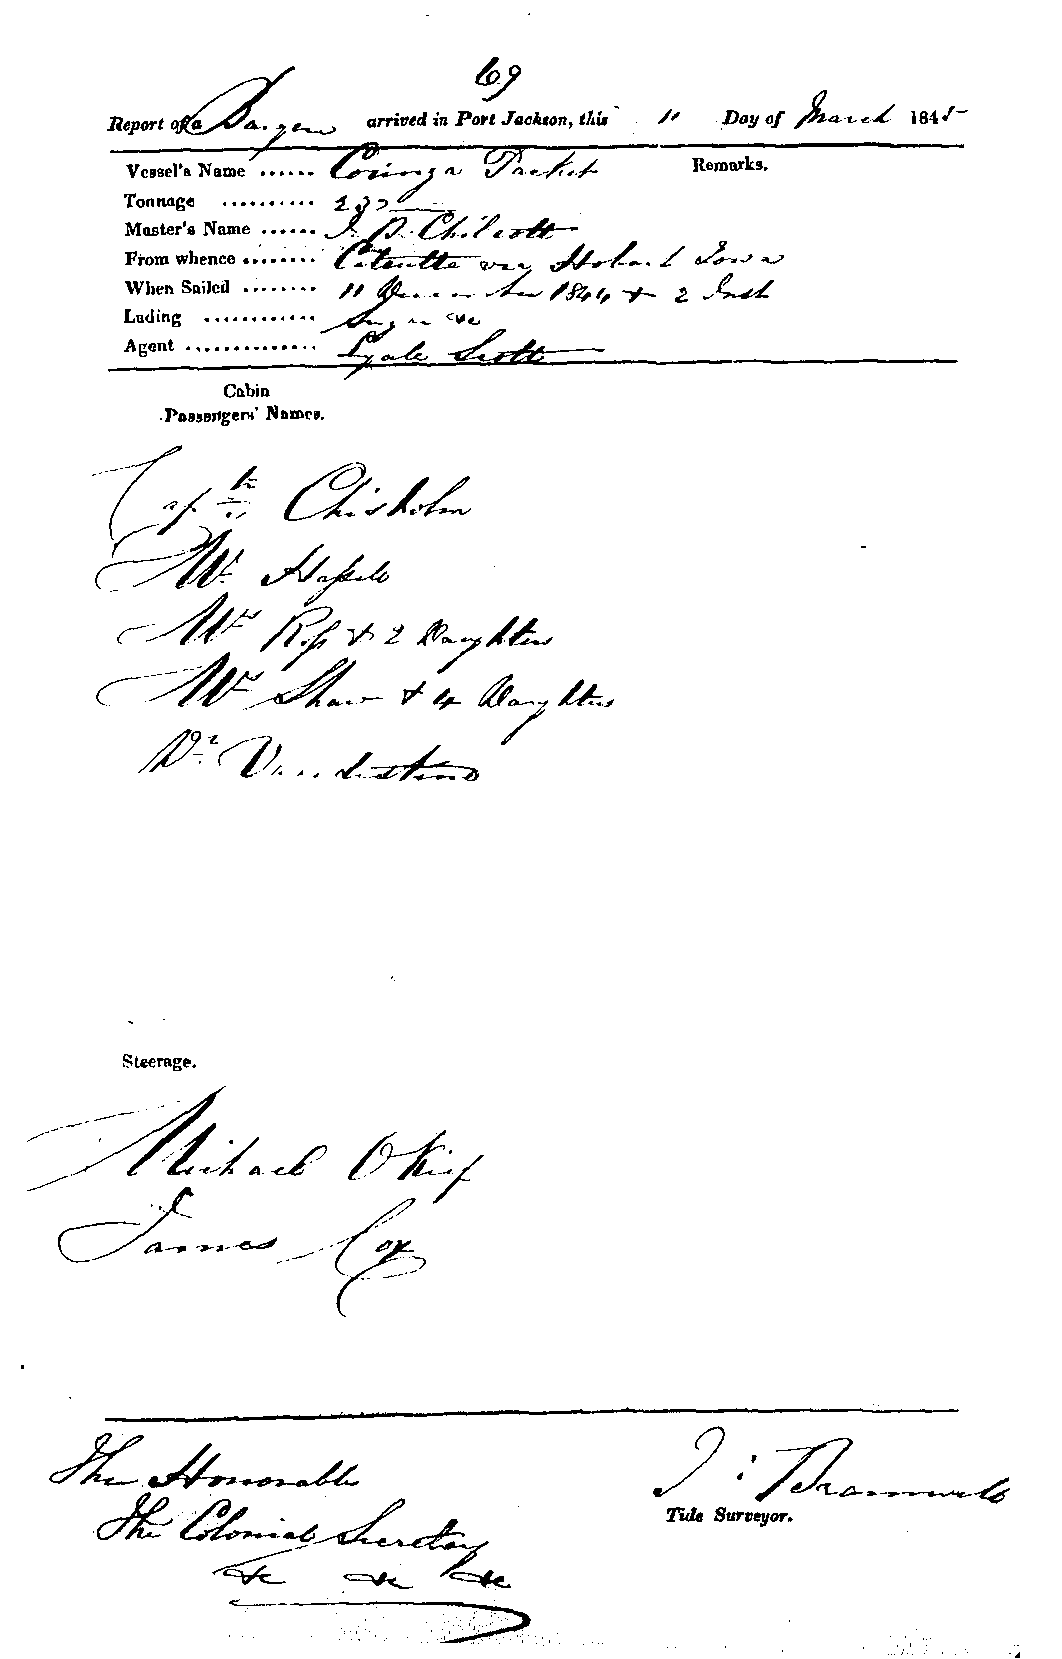 69
Report of a Barque arrived in Port Jackson, this 11 Day of March 1845
Vessel's Name ...... Coringa Packet Remarks.
Tonnage .......... 237
Master's Name ...... J. B. Chilcott
From whence ........ Calcutta via Hobart Town
When Sailed ........ 11 December 1844 & 2 Inst
Lading ............ Sugar &c
Agent .............. Lyale Scott
Cabin
Passengers' Names.
Captn Chisholm
Mr
Mrs Ross & 2 Daughters
Mrs Shaw & 4 Daughters
Dr
Steerage.
Michael OKief
James Cox
The Honorable
The Colonial Secretary
&c &c &c
J: Bramwell
Tide Surveyor.